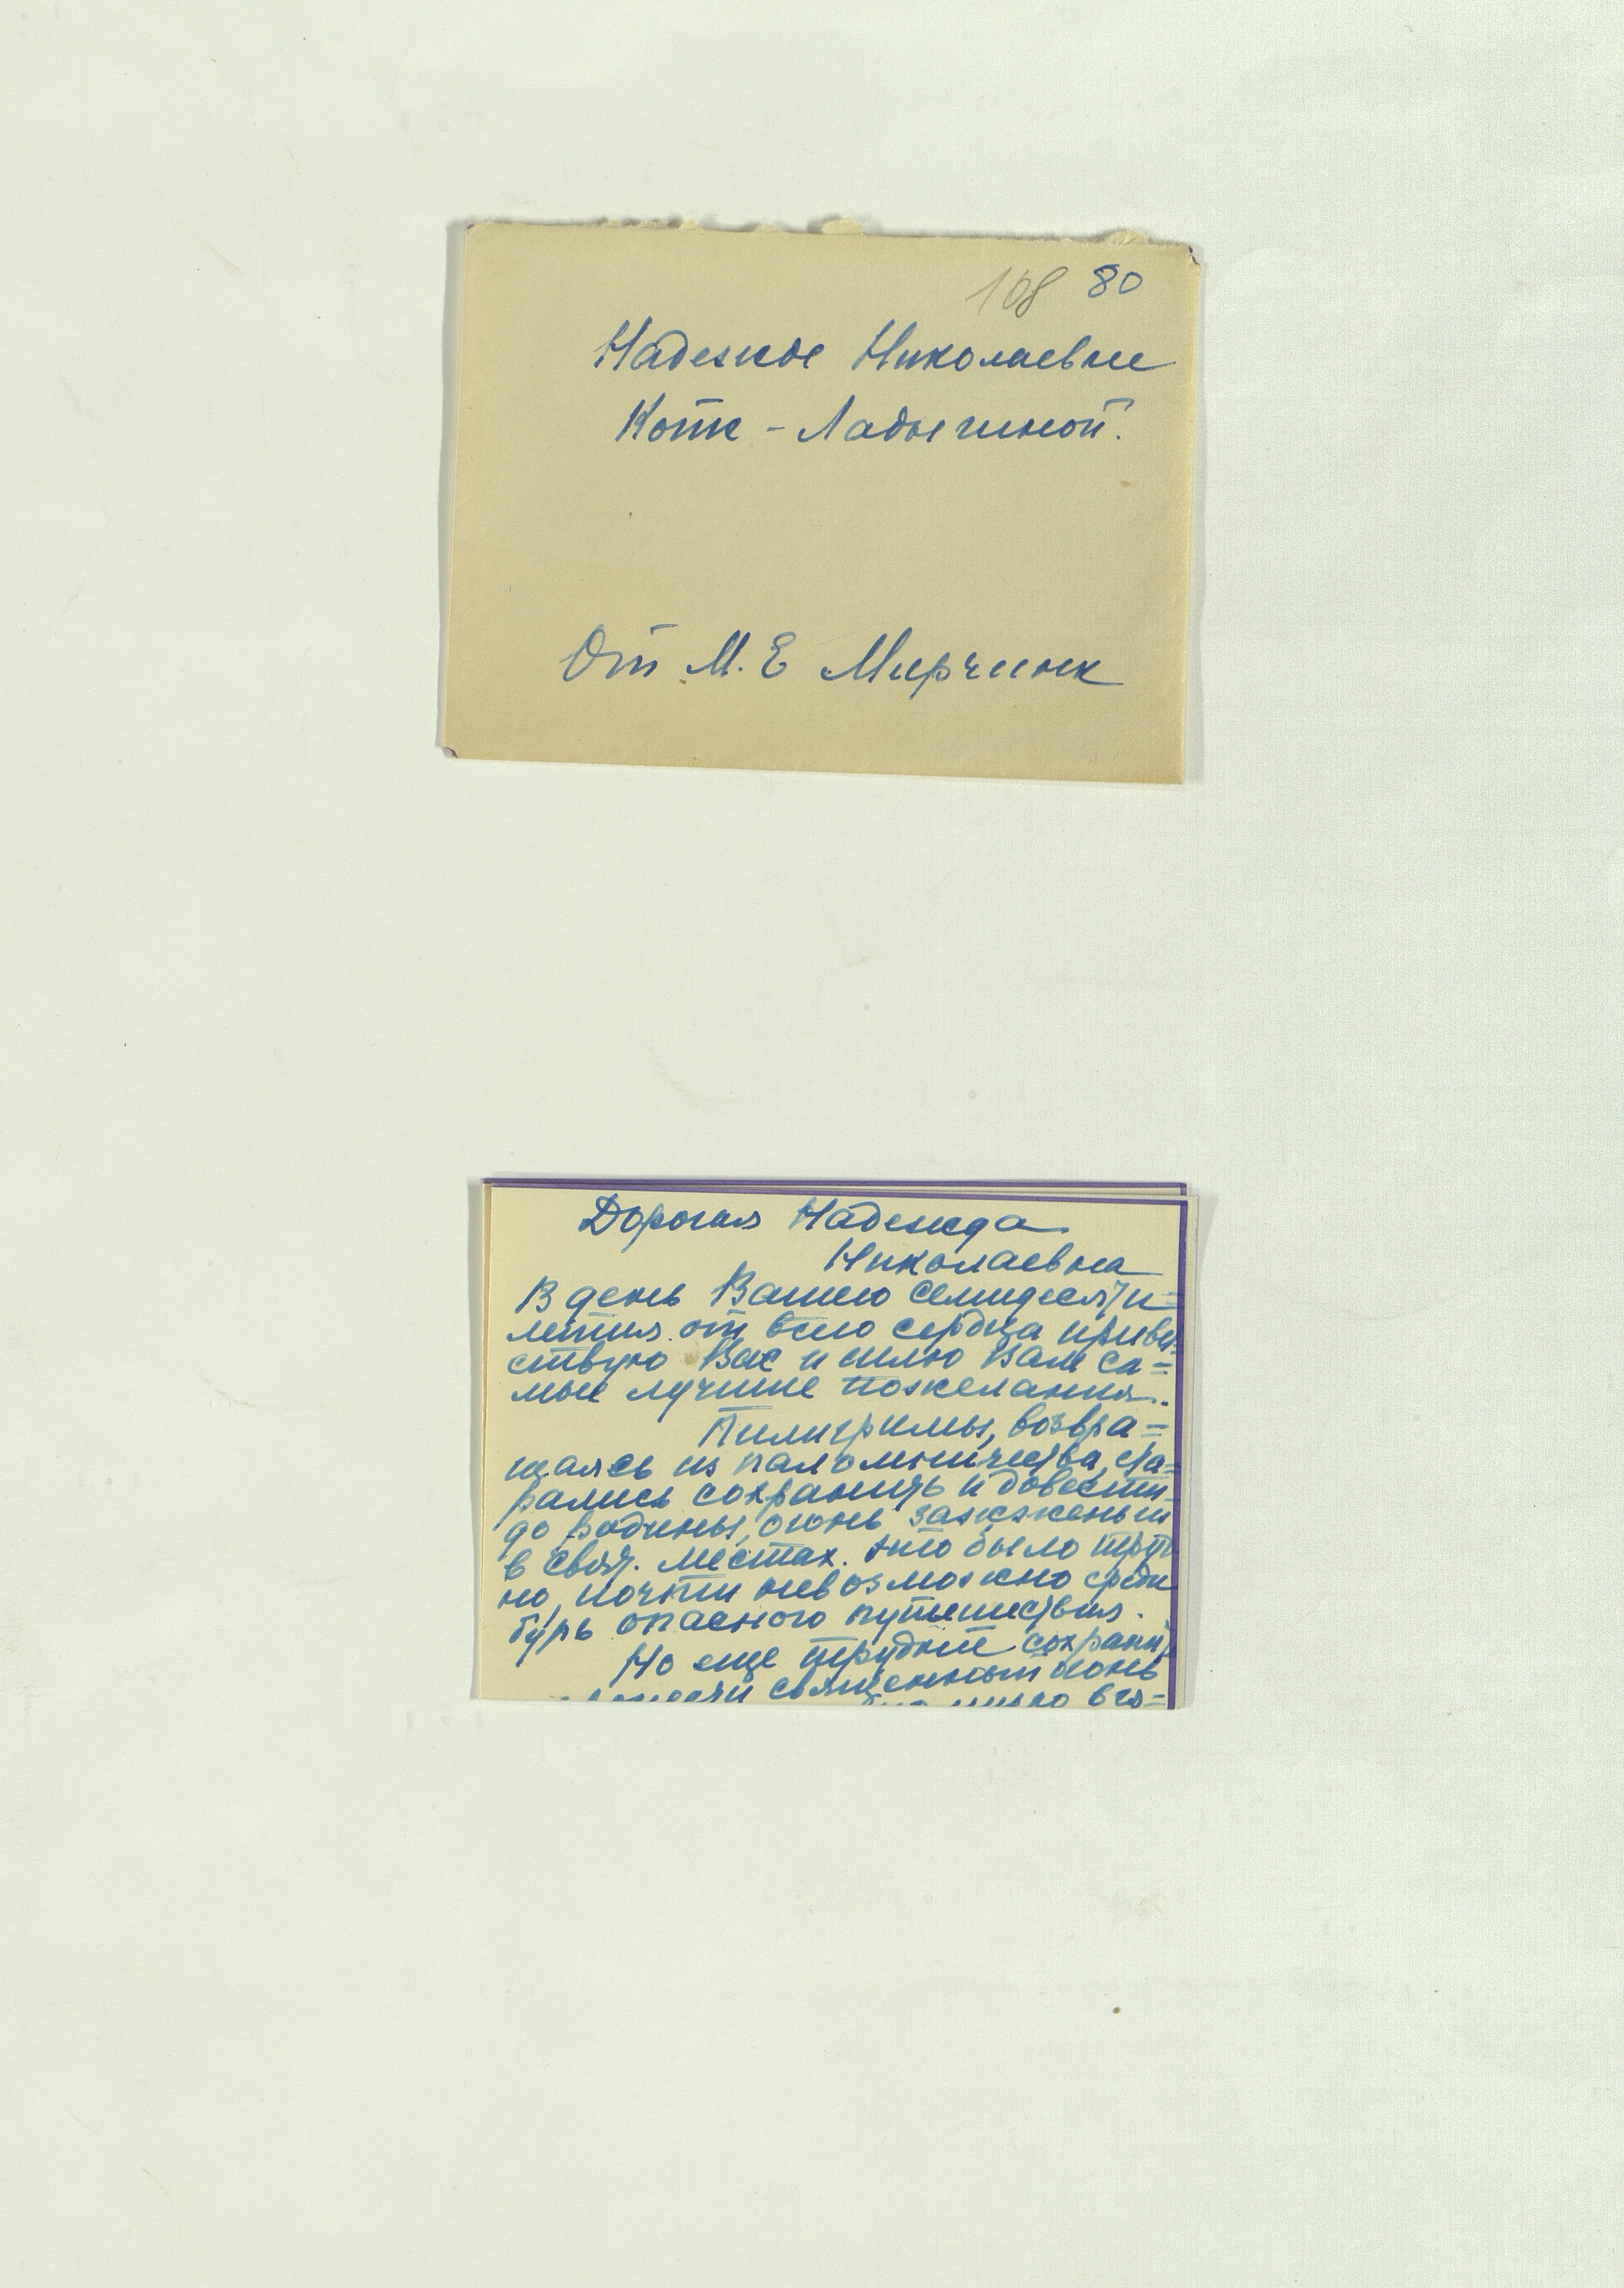 108 80
Надежде Николаевне
Котс - Ладыгиной.
От М. Е Мирчинк
Дорогая Надежда
Николаевна
В день Вашего семидесяти=
летия от всего сердца приве=
ствую Вас и шлю Вам са=
мые лучшие пожелания.
Пилигримы, возвра=
щаясь из паломничества, ста=
рались сохранить и довести
до родины, огонь зажженый
в свят. местах. Это было труд
но, почти невозможно среди
бурь опасного путешествия.
Но еще трудней сохранить
священный огонь